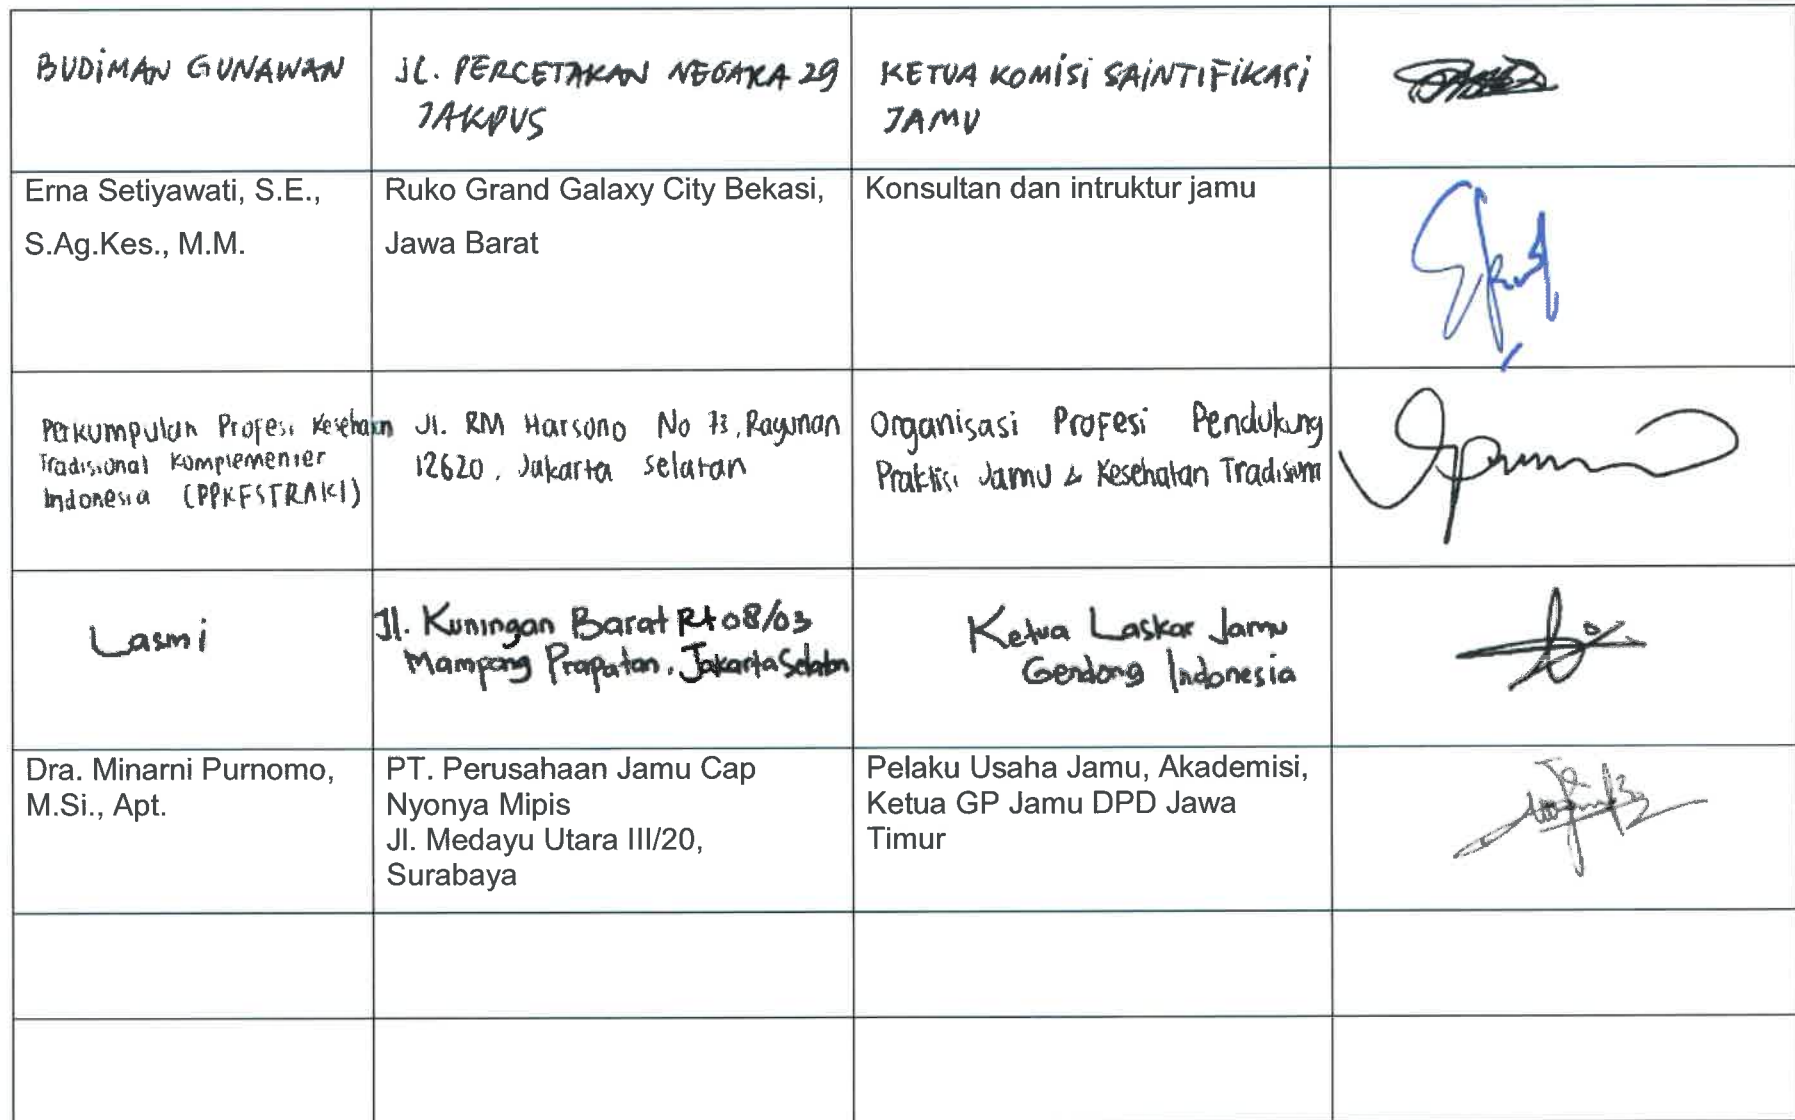 BUDIMAN GUNAWAN
JL. PERCETAKAN NEGARA 29
JAKPUS
KETUA KOMISI SAINTIFIKASI
JAMU
Erna Setiyawati, S.E.,
S.Ag.Kes., M.M.
Ruko Grand Galaxy City Bekasi,
Jawa Barat
Konsultan dan intruktur jamu
Perkumpulan Profesi Kesehatan
Tradisional Komplementer
Indonesia (PPKESTRAKI)
Jl. RM Harsono No 73, Ragunan
12620, Jakarta Selatan
Organisasi Profesi Pendukung
Praktisi Jamu & Kesehatan Tradisional
Lasmi
Jl. Kuningan Barat Rt 08/03
Mampang Prapatan, Jakarta Selatan
Ketua Laskar Jamu
Gendong Indonesia
Dra. Minarni Purnomo,
M.Si., Apt.
PT. Perusahaan Jamu Cap
Nyonya Mipis
Jl. Medayu Utara III/20,
Surabaya
Pelaku Usaha Jamu, Akademisi,
Ketua GP Jamu DPD Jawa
Timur